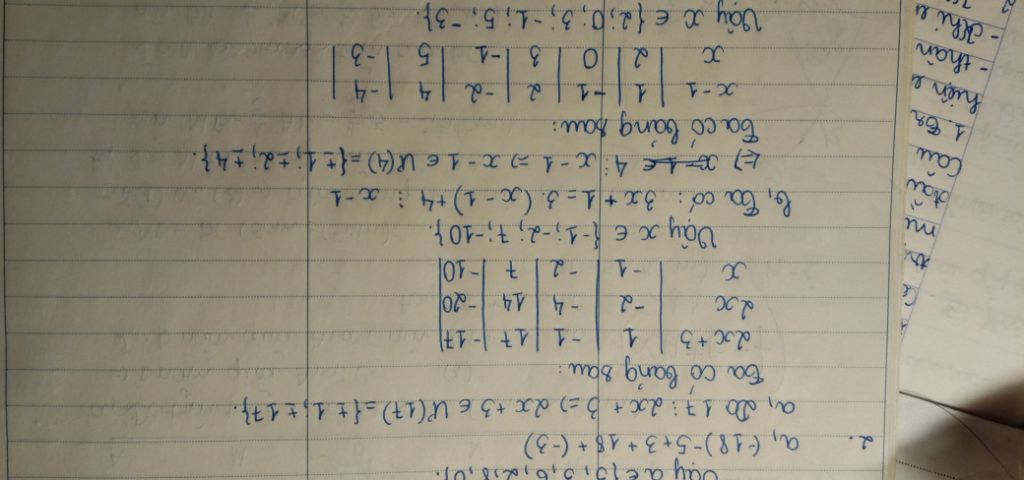 Vậy a ∈ {
2.
a, (-18) - 5 + 3 + 18 + (-3)
a, Do 17 ⋮ 2x + 3 => 2x + 3 ∈ Ư(17) = {±1; ±17}.
Ta có bảng sau:
2x+3 | 1 | -1 | 17 | -17
2x | -2 | -4 | 14 | -20
x | -1 | -2 | 7 | -10
Vậy x ∈ {-1; -2; 7; -10}.
b, Ta có: 3x + 1 = 3.(x - 1) + 4 ⋮ x - 1
4 ⋮ x - 1 => x - 1 ∈ Ư(4) = {±1; ±2; ±4}.
Ta có bảng sau:
x-1 | 1 | -1 | 2 | -2 | 4 | -4
x | 2 | 0 | 3 | -1 | 5 | -3
Vậy x ∈ {2; 0; 3; -1; 5; -3}.
Câu
1. Em
hiện
- thân
- Khi